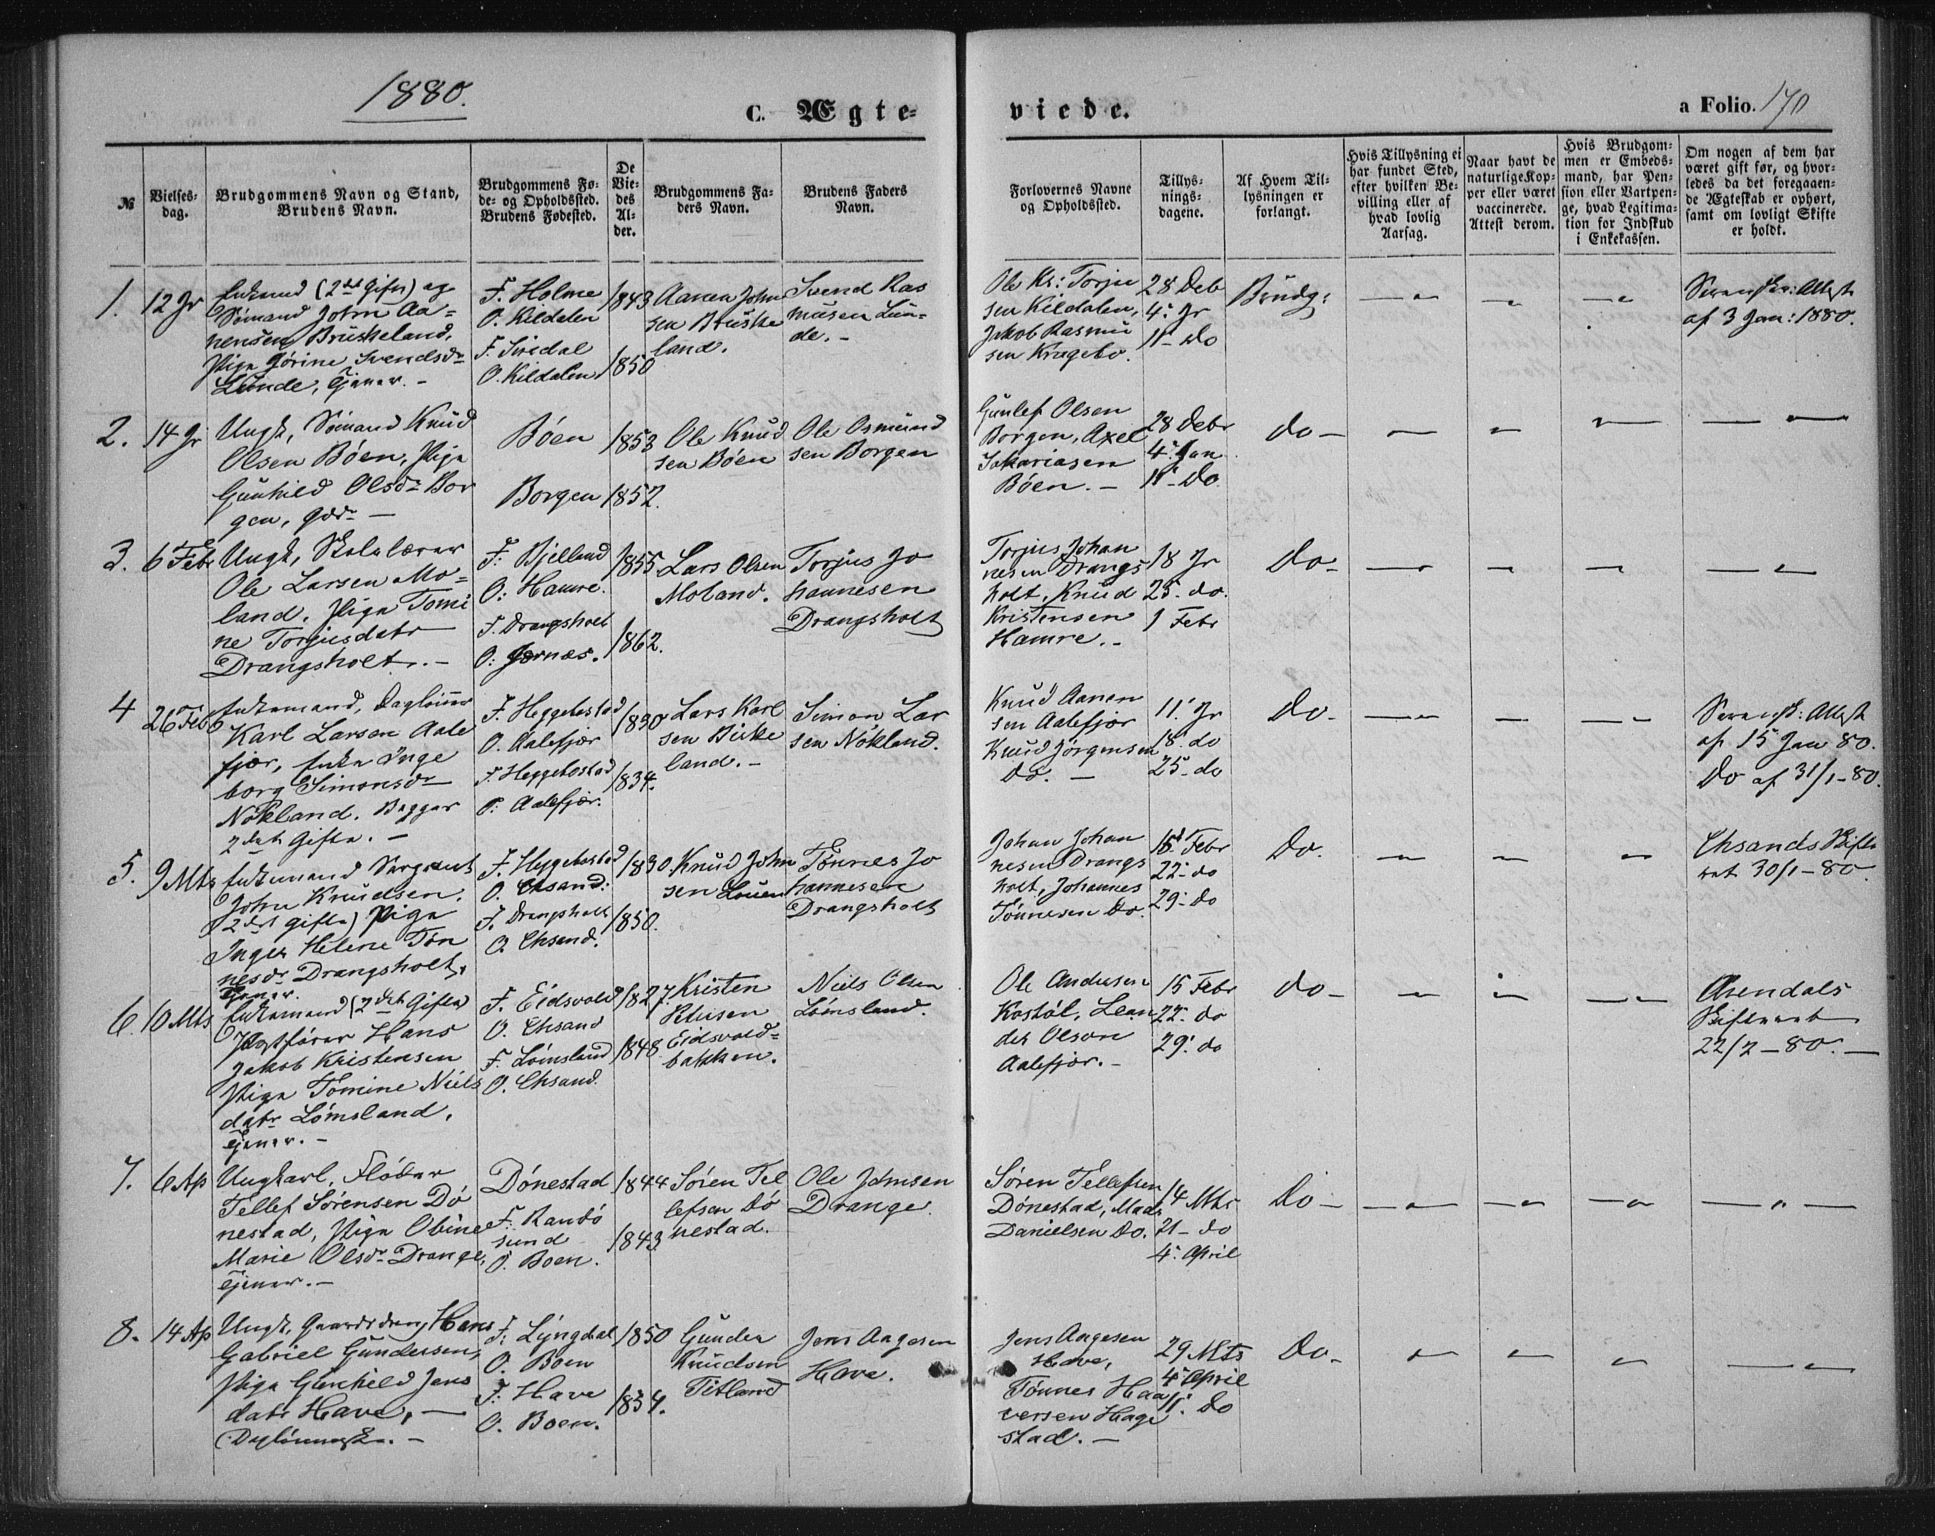 1880.
C. Ægte-
viede.
a Folio. 170
№
Vielses-
dag.
Brudgommens Navn og Stand,
Brudens Navn.
Brudgommens Fø-
de- og Opholdssted.
Brudens Fødested.
De
Vie-
des
Al-
der.
Brudgommens Fa-
ders Navn.
Brudens Faders
Navn.
Forlovernes Navne
og Opholdssted.
Tillys-
nings-
dagene.
Af Hvem Til-
lysningen er
forlangt.
Hvis Tillysning ei
har fundet Sted,
efter hvilken Be-
villing eller af
hvad lovlig
Aarsag.
Naar havt de
naturlige Kop-
per eller været
vaccinerede.
Attest derom.
Hvis Brudgom-
men er Embeds-
mand, har Pen-
sion eller Vartpen-
ge, hvad Legitima-
tion for Indskud
i Enkekassen.
Om nogen af dem har
været gift før, og hvor-
ledes da det foregaaen-
de Ægteskab er ophørt,
samt om lovligt Skifte
er holdt.
1.
12 Jr
Enkemd (2det Gifte) og
Sømand John Aa=
nensen Bruskeland,
Pige Jörine Svendsdr
Lunde, tjener. -
F. Holme
O. Kildalen
F. Siredal
O. Kildalen
1843
1850
Aanen John
sen Bruske
land.
Svend Ras
musen Lun-
de. -
Ole Kr: Torju
sen Kildalen,
Jakob Rasmu
sen Kragebo.
28 Deb
4: Jr
11- Do
Brudg:
af 3 Jan: 1880.
2.
14 Jr
Ungk, Sømand Knud
Olsen Böen, Pige
Gunhild Olsdr Bor
gen, Gdr -
Böen
Borgen
1853
1852.
Ole Knud
sen Böen
Ole Osmund
sen Borgen
Gunlef Olsen
Borgen, Axel
Sakariasen
Böen. -
28 Debr
4: Jan
11- Do
do-
3.
6 Febr
Ungk, Skolelærer
Ole Larsen Mo=
land, Pige Tomi
ne Torjusdatr
Drangsholt. -
F. Bjelland
O: Hamre.
F. Drangsholt
O: Jærnæs.
1855
1862.
Lars Olsen
Moland.
Torjus Jo
hannesen
Drangsholt
Torjus Johan
nesen Drangs
holt, Knud
Kristensen
Hamre. -
18 Jr
25. do.
1 Febr
Do-
4
26 Feb
Enkemand, Daglönner
Karl Larsen Aale
fjær, Enke Inge
borg Simonsdr
Nökland. Begger
2det Gifte. -
F. Heggebostad
O. Aalefjær
F. Heggebostad
O: Aalefjær.
1830
1834.
Lars Karl
sen Birke
land. -
Simon Lar
sen Nökland.
Knud Aanen
sen Aalefjær
Knud Jörgensen
Do. -
11: Jr
18. do
25- do
Do-
af 15 Jan 80.
Do af 31/1-80
5.
9 Mts
Enkemand Sergeant
John Knudsen.
(2det Gifte) Pige
Inger Helene Tön
nesdr Drangsholt,
tjener.
F. Heggebostad
O. Chsand:
F. Drangsholt
O. Chsand.
1830
1850.
Knud John
sen Louen
Tönnes Jo
hannesen
Drangsholt
Johan Johan
nesen Drangs
holt, Johannes
Tönnesen Do.
15 Febr
22- do
29- do
Do.
Chsands Skifte
ret 30/1-80.
6.
10 Mts
Enkemand (2det Gifte)
Hans
Jakob Kristensen
Pige Tomine Niels
datr Lömsland,
tjener. -
F. Eidsvold
O. Chsand
F. Lömsland
O. Chsand.
1827.
1848.
Kristen
Eidsvold=
bakken.
Niels Olsen
Lömsland.
Ole Andersen
Kostöl, Lean
der Olson
Aalefjær. -
15 Febr
22- do
29: do
do-
Arendals
Skifteret
22/2-80. -
7.
6 Ap
Ungkarl, Flöter
Tellef Sörensen Dö
nestad, Pige Obine
Marie Olsdr Drange,
tjener. -
Dönestad
F. Randö
sund
O. Boen.
1844
1843
Sören Tel
lefsen Dö
nestad.
Ole Jömsen
Drange.
Sören Tellefsen
Dönestad, Mads
Danielsen Do.
14 Mts
21- do
4: April
Do-
8.
14 Ap
Ungk, Gaardsdreng Hans
Gabriel Gundersen,
Pige Gunhild Jens
datr Have, -
Daglönnerske. -
F: Lyngdal
O. Boen
F. Have
O. Boen.
1850
1834.
Gunder
Knudsen
Titland
Jens Aagesen
Have.
Jens Aagesen
Have,
Tönnes Haa
versen Hage
stad. -
29 Mts
4: April
11: Do
Do-